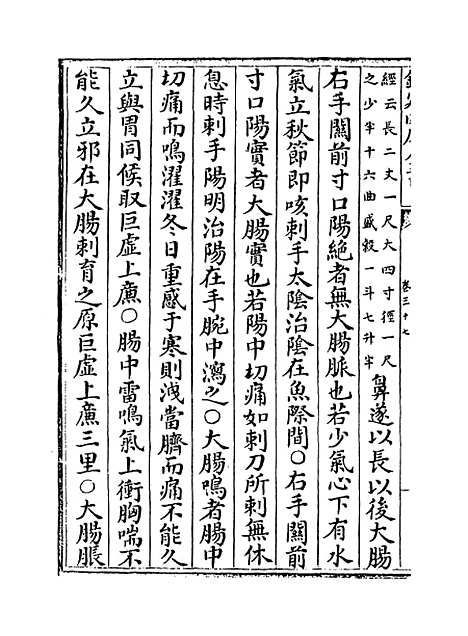 卷三十七
經云長二丈一尺大四寸徑一尺
之少半十六曲盛穀一斗七升半
鼻遂以長以後大腸
右手關前寸口陽絶者無大腸脈也若少氣心下有水
氣立秋節即咳刺手太陰治陰在魚際間○右手關前
寸口陽實者大腸實也若陽中切痛如刺刀所刺無休
息時刺手陽明治陽在手腕中瀉之○大腸鳴者腸中
切痛而鳴濯濯冬日重感于寒則洩當臍而痛不能久
立與胃同候取巨虛上廉○腸中雷鳴氣上衝胸喘不
能久立邪在大腸刺育之原巨虛上廉三里○大腸脹